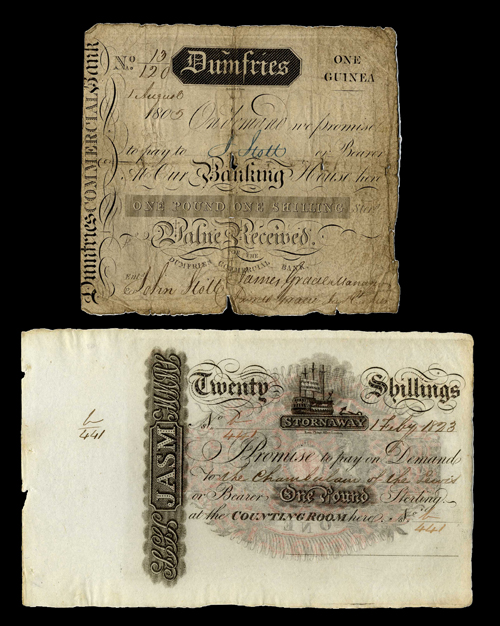 Dumfries COMMERCIAL Bank
No. 13/120 Dumfries ONE GUINEA
1 August 1803
On demand we promise
to pay to J. Stott or Bearer
At Our Banking House here
ONE POUND ONE SHILLING Ster
Value Received.
FOR THE
DUMFRIES COMMERCIAL BANK
Ent. John Stott James Gracie Manager
Twenty Shillings
STORNAWAY
No. 1 Feby 1823
441
441
JASM
I Promise to pay on Demand
to the Chamberlain of the Lewis
or Bearer One Pound Sterling
at the COUNTING ROOM here. No.
441